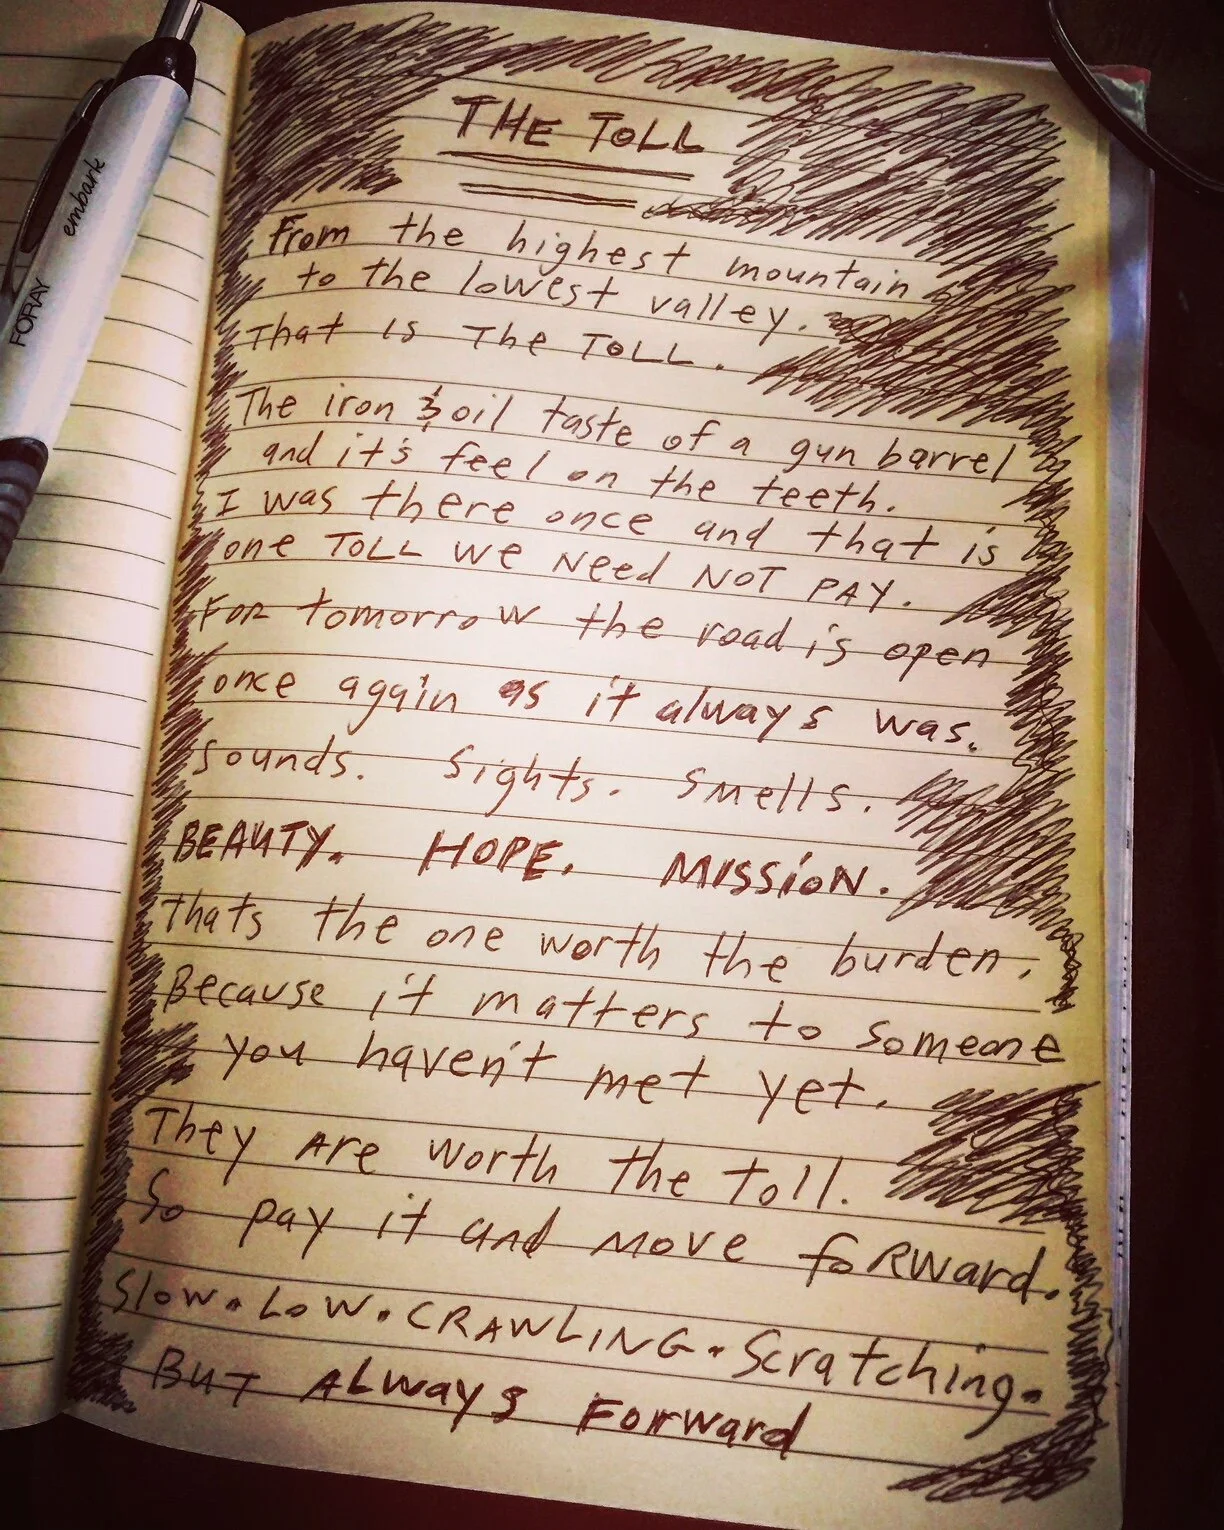 embark
FORAY
THE TOLL
From the highest mountain
to the lowest valley.
That is The TOLL.
The iron & oil taste of a gun barrel
and it's feel on the teeth.
I was there once and that is
one TOLL we Need NOT PAY.
FOR tomorrow the road is open
once again as it always was.
Sounds. Sights. Smells.
BEAUTY. HOPE. MISSiON.
thats the one worth the burden.
Because it matters to someone
you haven't met yet.
They are worth the toll.
So pay it and move foRward.
Slow. Low. CRAWLING. Scratching.
BUT ALways Forward